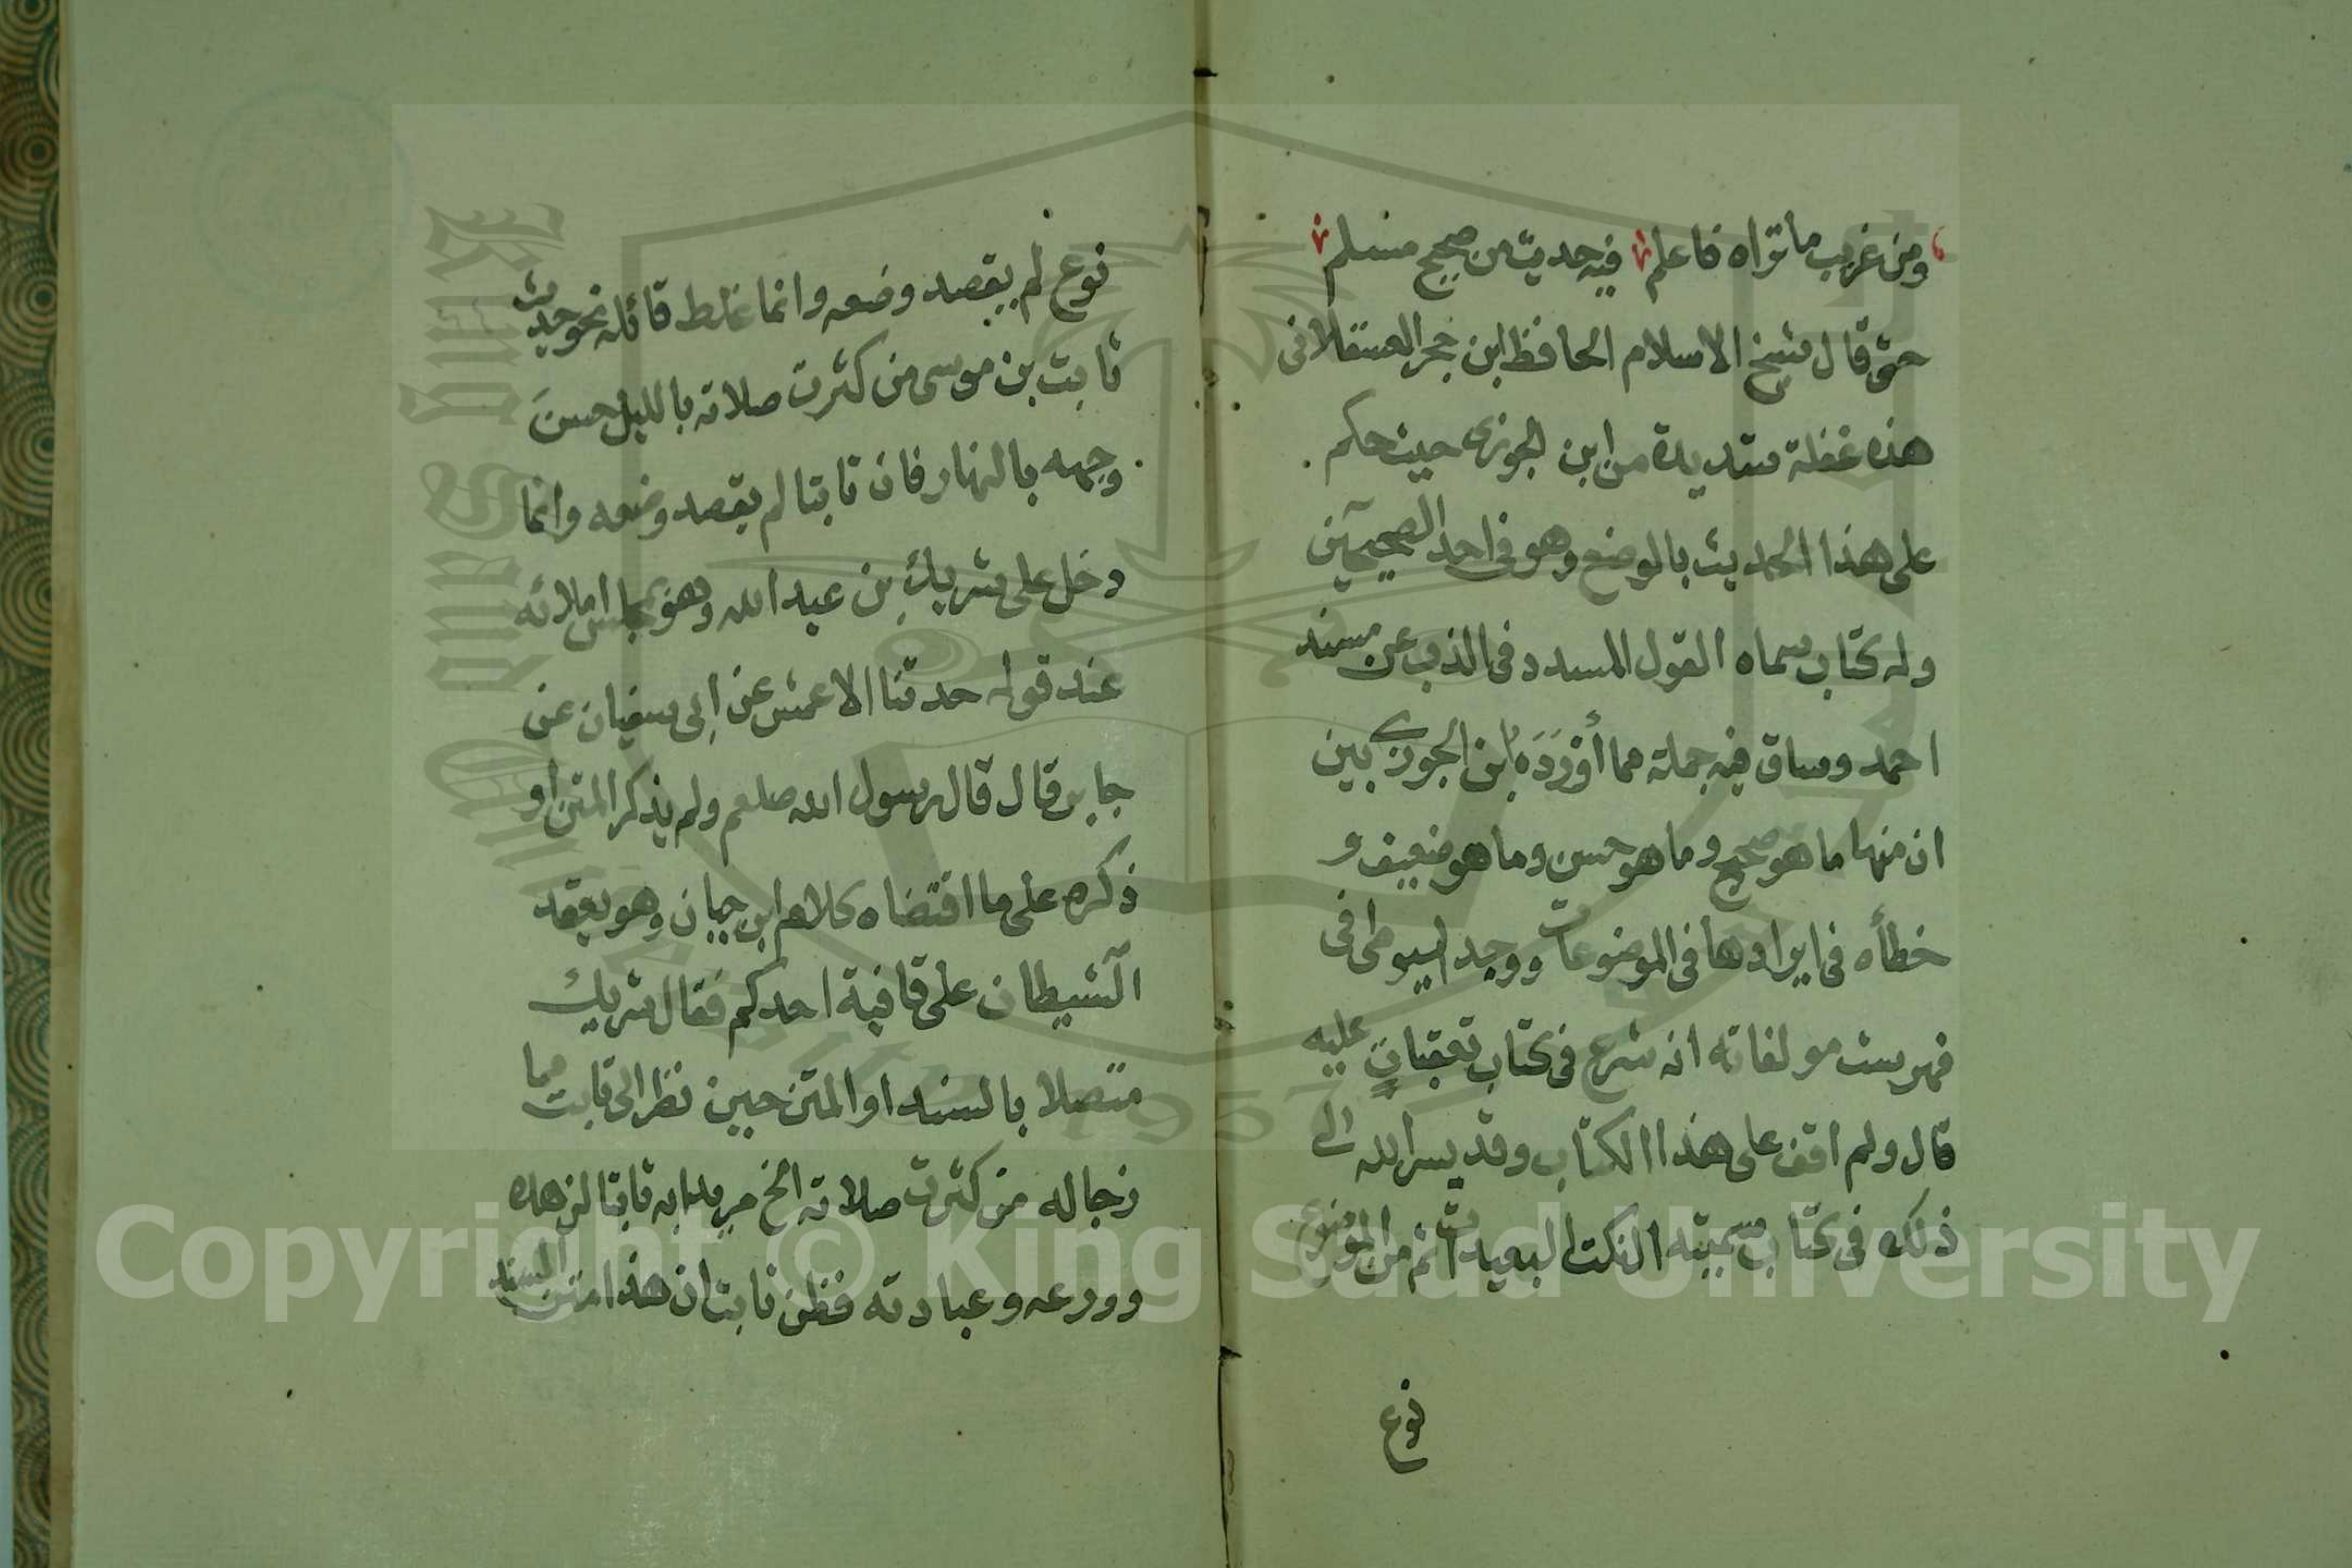 ومن غريب ما تراه فاعلم فيه حديث من صحيح مسلم
حتى قال شيخ الاسلام الحافظ ابن حجر العسقلانى
هذه غفلة شديدة من ابن الجوزى حيث حكم
على هذا الحديث بالوضع وهو فى احد الصحيحين
وله كتاب سماه القول المسدد فى الذب عن مسند
احمد وساق فيه جملة مما أَوْرَدَهُ ابن الجوزى بين
ان منها ما هو صحيح وما هو حسن وما هو ضعيف و
خطأه فى ايرادها فى الموضوعات ووجد السيوطى فى
فهرست مولفاته انه شرع فى كتاب تعقبات عليه
قال ولم اقف على هذا الكتاب وقد يسر الله الى
ذلك فى كتاب سميته النكت البعيدات ثم من الموضوع
نوع
نوع لم يقصد وضعه وانما غلط قائله نحو حديث
ثابت بن موسى من كثرت صلاته بالليل حسنَ
وجهه بالنهار فان ثابتا لم يقصد وضعه وانما
دخل على شريك بن عبد الله وهو بمجلس املائه
عند قوله حدثنا الاعمش عن ابى سفيان عن
جابر قال قال رسول الله صلعم ولم يذكر المتن او
ذكره على ما اقتضاه كلام ابن حبان وهو يعقد
الشيطان على قافية احدكم فقال شريك
متصلا بالسند او المتن حين نظر الى ثابت مما
زجاله من كثرت صلاته الخ مريدا به ثابتا لزهده
وورعه وعبادته فظن ثابت ان هذا متن السند
Copyright © King Saud University
1957